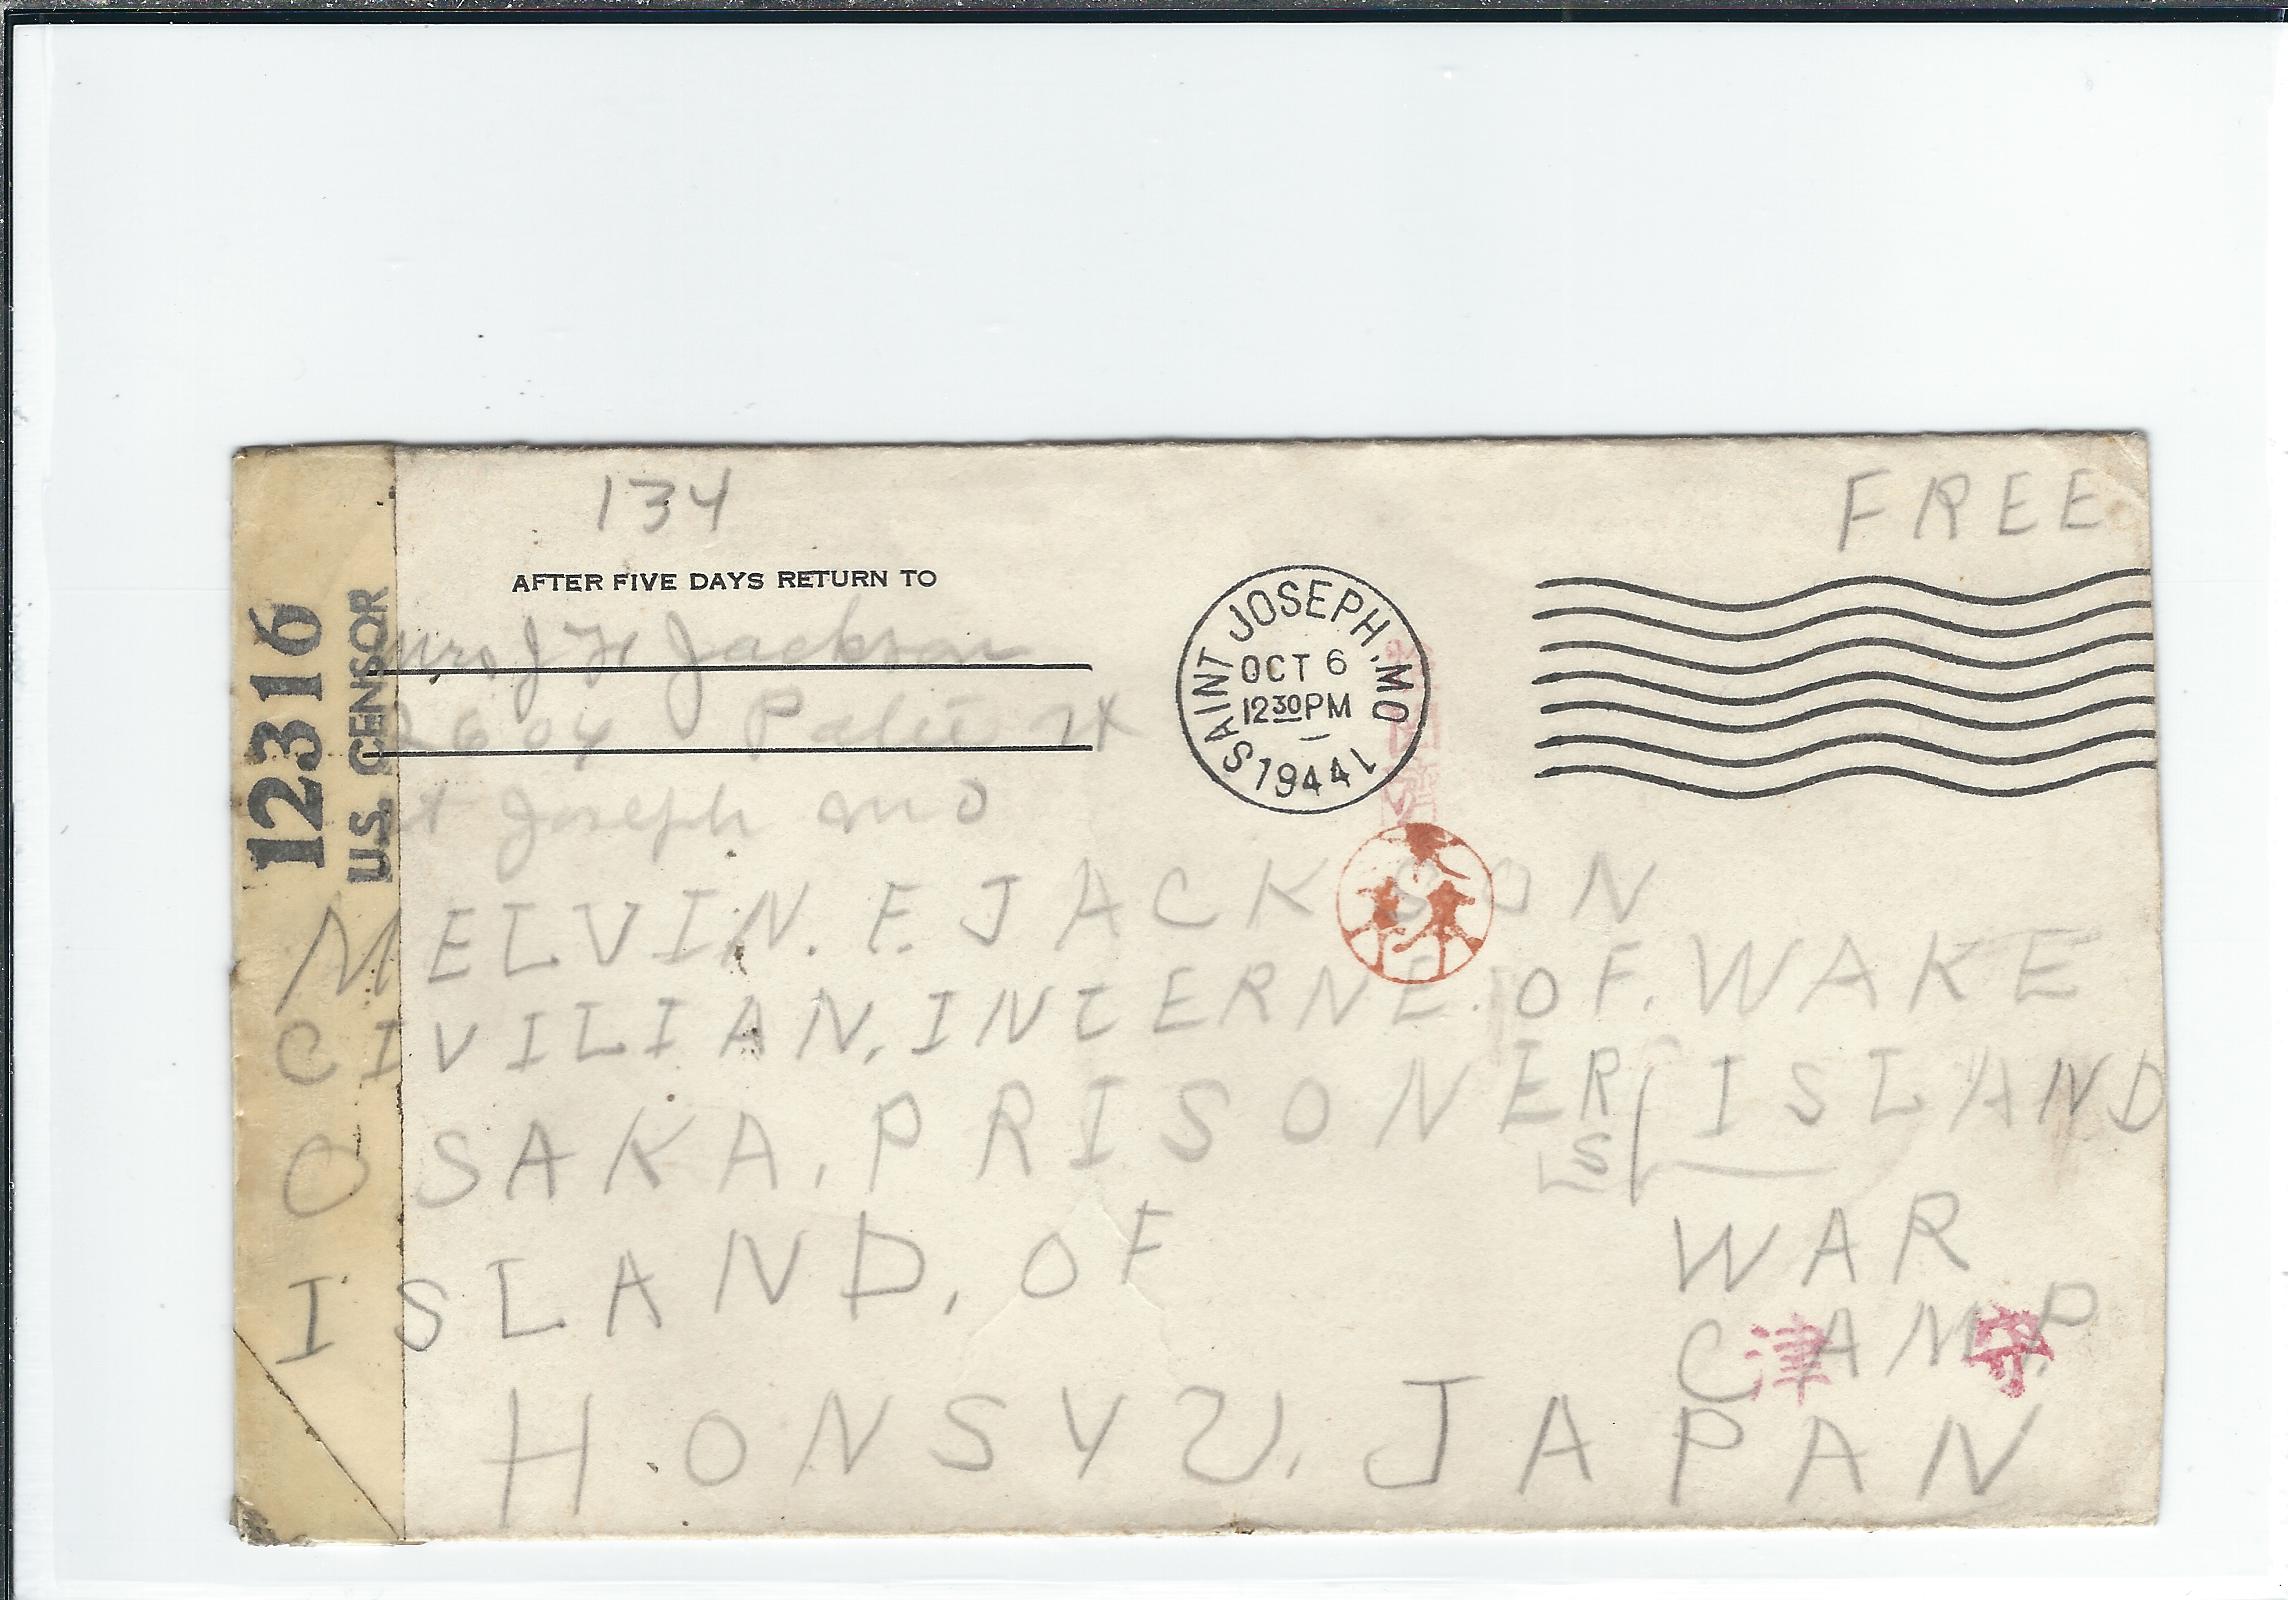 134
FREE
AFTER FIVE DAYS RETURN TO
Mrs J H Jackson
2604
St Joseph Mo
SAINT JOSEPH, MO
OCT 6
12 30 PM
1944
12316
U.S. CENSOR
MELVIN. F. JACKSON
CIVILIAN, INTERNE. OF. WAKE
ISLAND
OSAKA, PRISONERS
WAR
CAMP
ISLAND, OF
HONSYU, JAPAN
津守